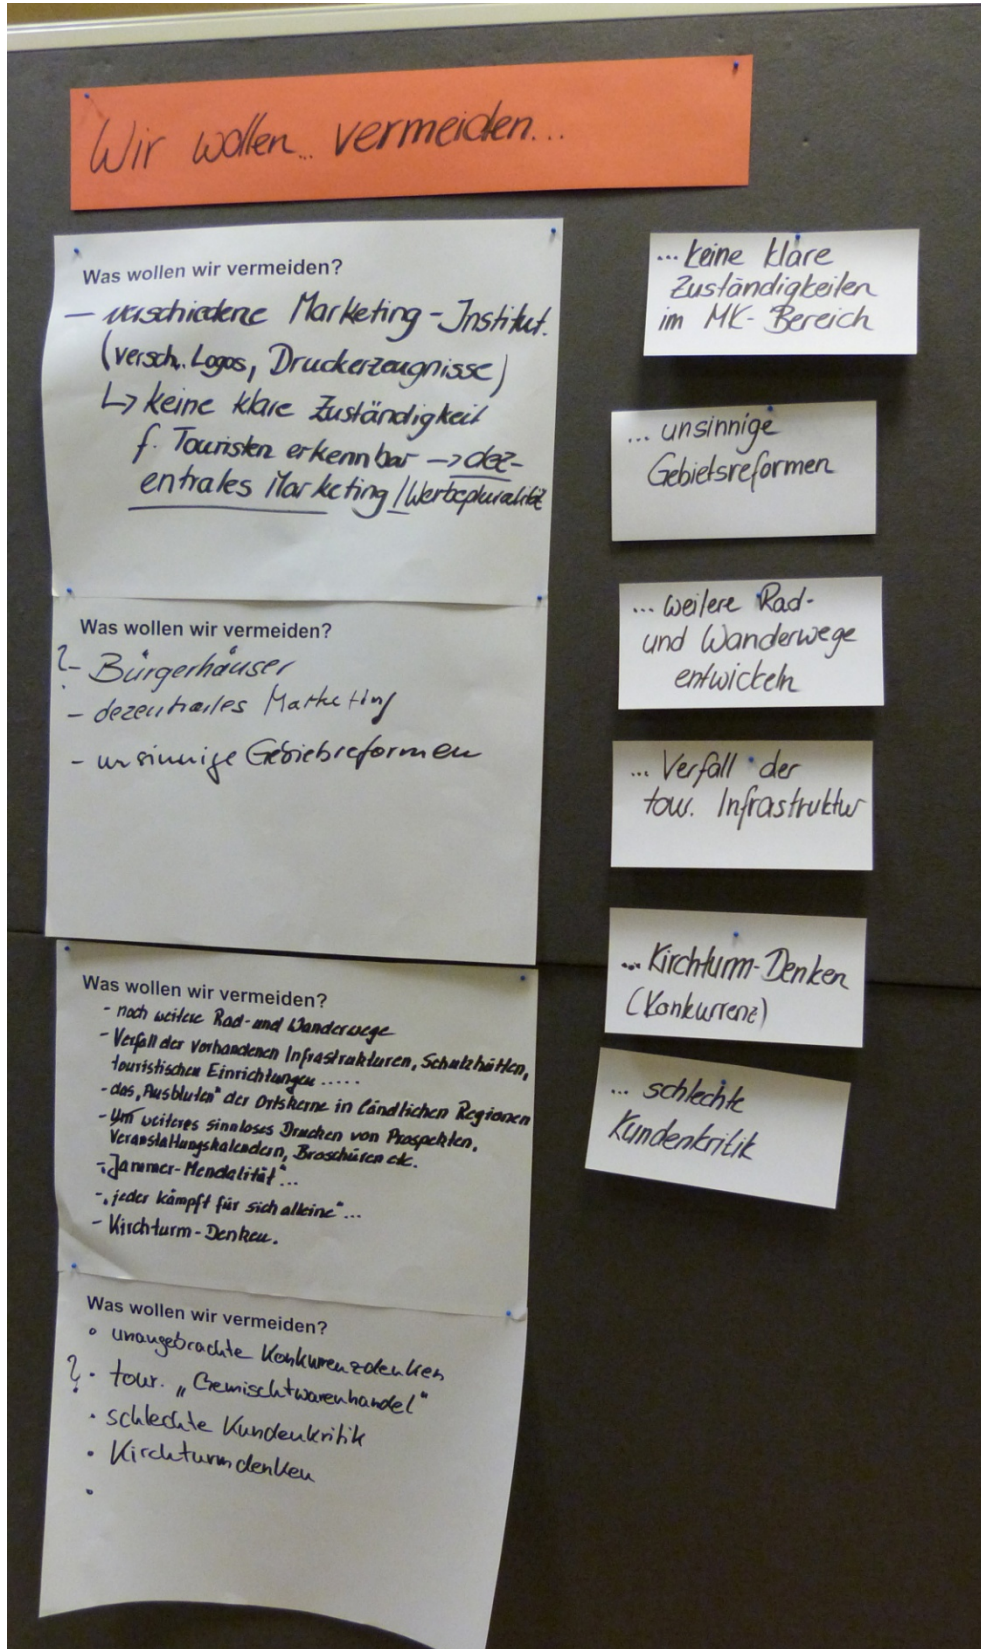 Wir wollen... vermeiden...
Was wollen wir vermeiden?
– verschiedene Marketing-Institut.
(versch. Logos, Druckerzeugnisse)
↳ keine klare Zuständigkeit
f. Touristen erkennbar → dez-
entrales Marketing / Werbepluralität
Was wollen wir vermeiden?
? - Bürgerhäuser
- dezentrales Marketing
- unsinnige Gebietsreformen
Was wollen wir vermeiden?
- noch weitere Rad- und Wanderwege
- Verfall der vorhandenen Infrastrukturen, Schutzhütten,
touristischen Einrichtungen .....
- das „Ausbluten" der Ortskerne in ländlichen Regionen
- Um weiteres sinnloses Drucken von Prospekten,
Veranstaltungskalendern, Broschüren etc.
- „Jammer-Mendalität"...
- „jeder kämpft für sich alleine"...
- Kirchturm-Denken.
Was wollen wir vermeiden?
• unangebrachte Konkurrenzdenken
? • tour. „Gemischtwarenhandel"
• schlechte Kundenkritik
• Kirchturmdenken
•
... keine klare
Zuständigkeiten
im MK-Bereich
... unsinnige
Gebietsreformen
... weitere Rad-
und Wanderwege
entwickeln
... Verfall der
tour. Infrastruktur
... Kirchturm-Denken
(Konkurrenz)
... schlechte
Kundenkritik